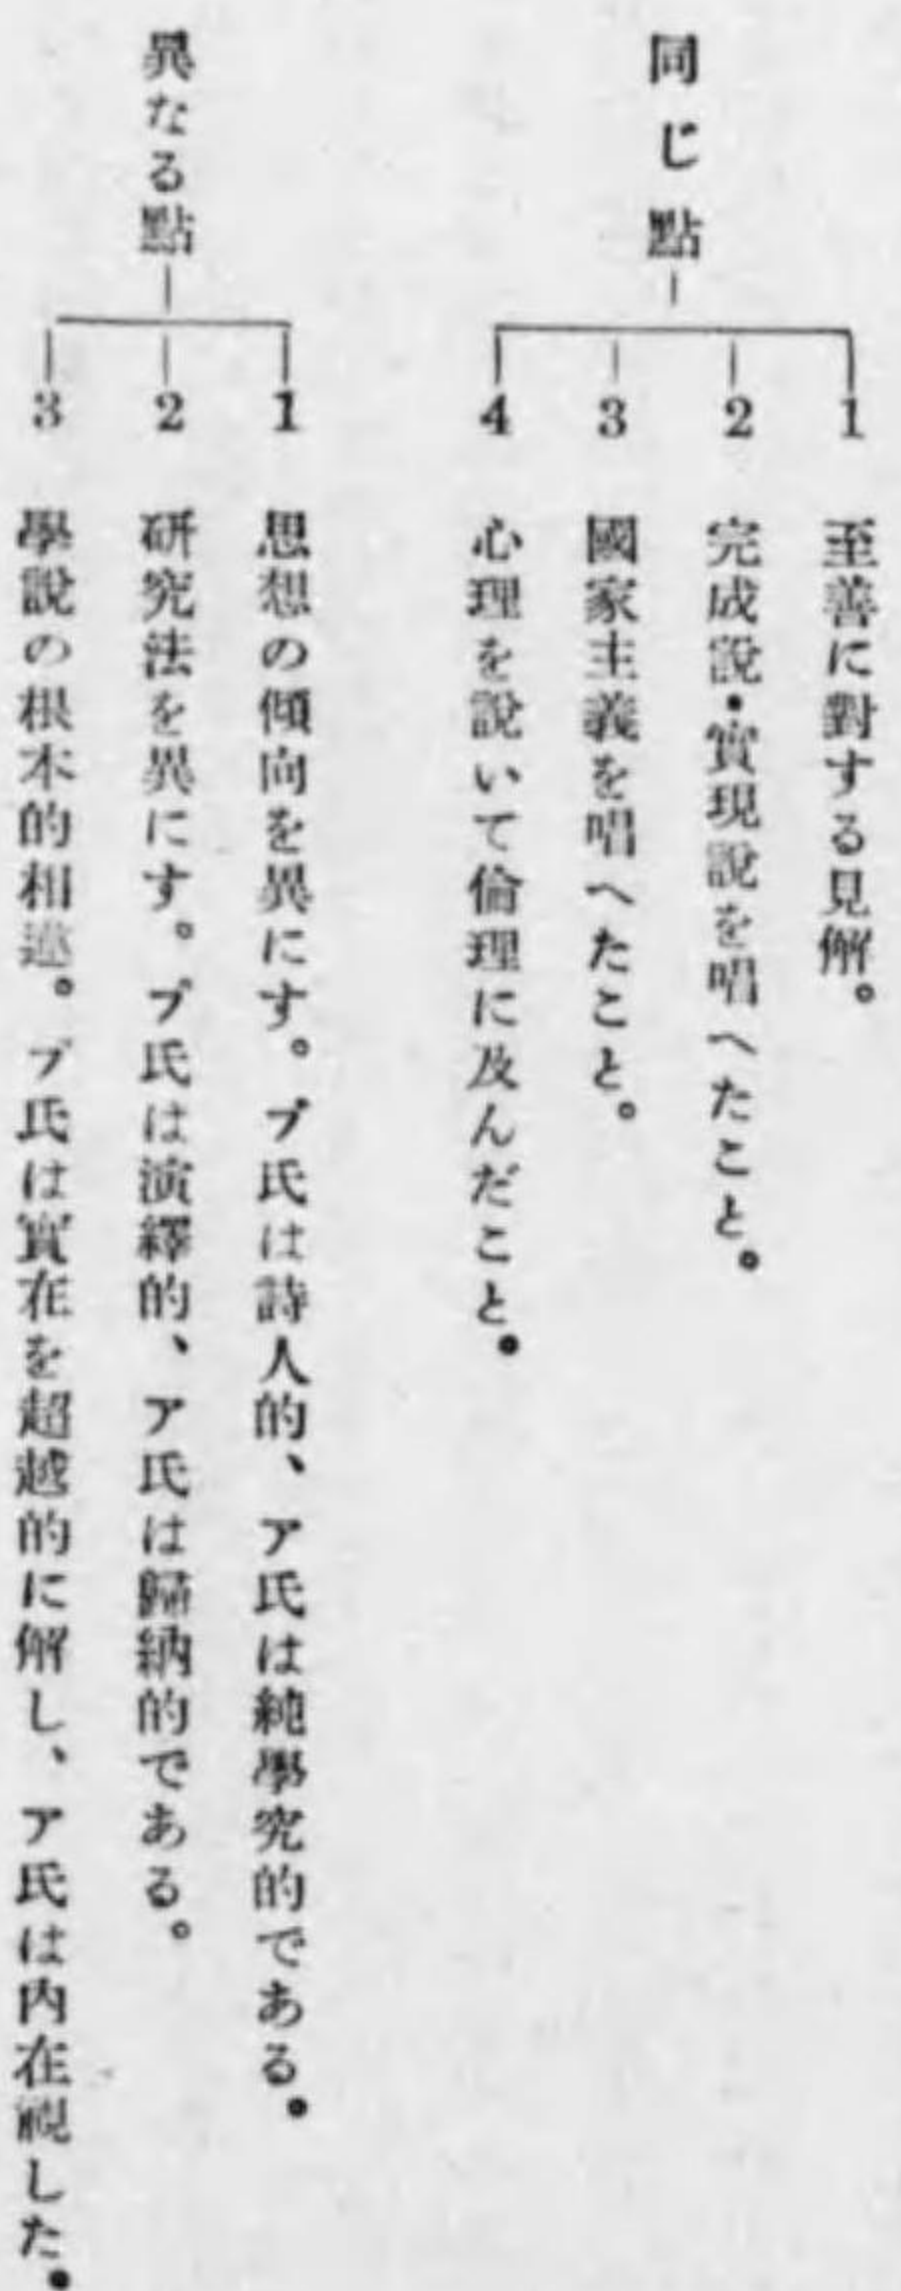 同じ點
1 至善に對する見解。
2 完成說・實現說を唱へたこと。
3 國家主義を唱へたこと。
4 心理を說いて倫理に及んだこと。
異なる點
1 思想の傾向を異にす。プ氏は詩人的、ア氏は純學究的である。
2 研究法を異にす。プ氏は演繹的、ア氏は歸納的である。
3 學說の根本的相違。プ氏は實在を超越的に解し、ア氏は內在視した。